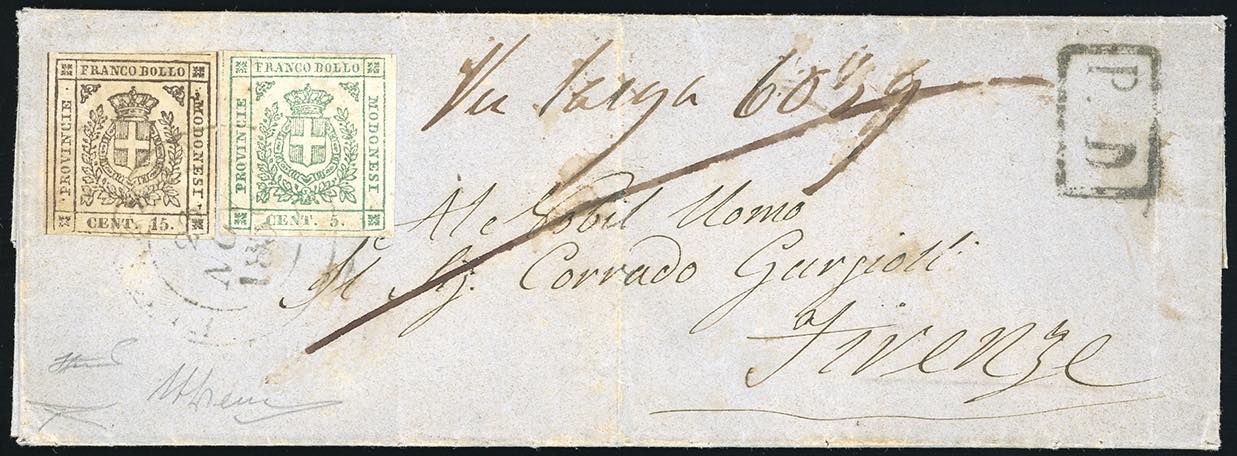 FRANCO BOLLO
PROVINCIE
MODONESI
CENT. 15.
FRANCO BOLLO
PROVINCIE
MODONESI
CENT. 5.
Via larga 6039
P. D.
Al Nobil Uomo
Il Sg. Corrado Gargiolli
Firenze